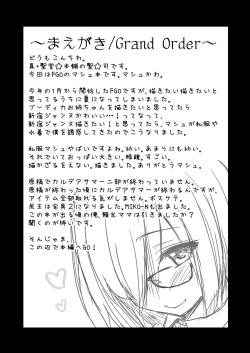 ～まえがき/Grand Order～
どうもこんちわ。
真・聖堂☆本舗の聖☆司です。
今回はFGOのマシュ本です。マシュかわ。
今年の1月から開始したFGOですが、描きたい描きたいと
思ってるうちに夏になってしまいました。
ブーディカお姉ちゃんを描きたいと思ってたら
新宿ジャンヌかわいい…！ってなって、
新宿ジャンヌ描きたい！と思ってたらマシュが私服や
水着で僕を誘惑してきたのでこうなりました。
私服マシュやばいですよね。幼い。あまりにも幼い。
それでいておっぱい大きい。眼鏡。すごい。
描かざるをえない。描きました。ありがとうマシュ。
原稿でカルデアサマー二部が終わっていません。
原稿が終わった頃にカルデアサマーが終わるんですが、
アイテム全部取れる気がしません。ボスケテ。
尾王は宝具2になりました。MIKO-Nも出ました。
この本が出る頃の俺、頼光ママは引きましたか？
聞くのが怖いです。
そんじゃま、
この辺で本編へGO！